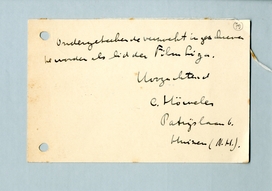 Ondergetekende verzoekt ingeschreven
te worden als lid der Film Liga.
Hoogachtend
C. Höweler
Patrijslaan 6.
Huizen (N.H.).